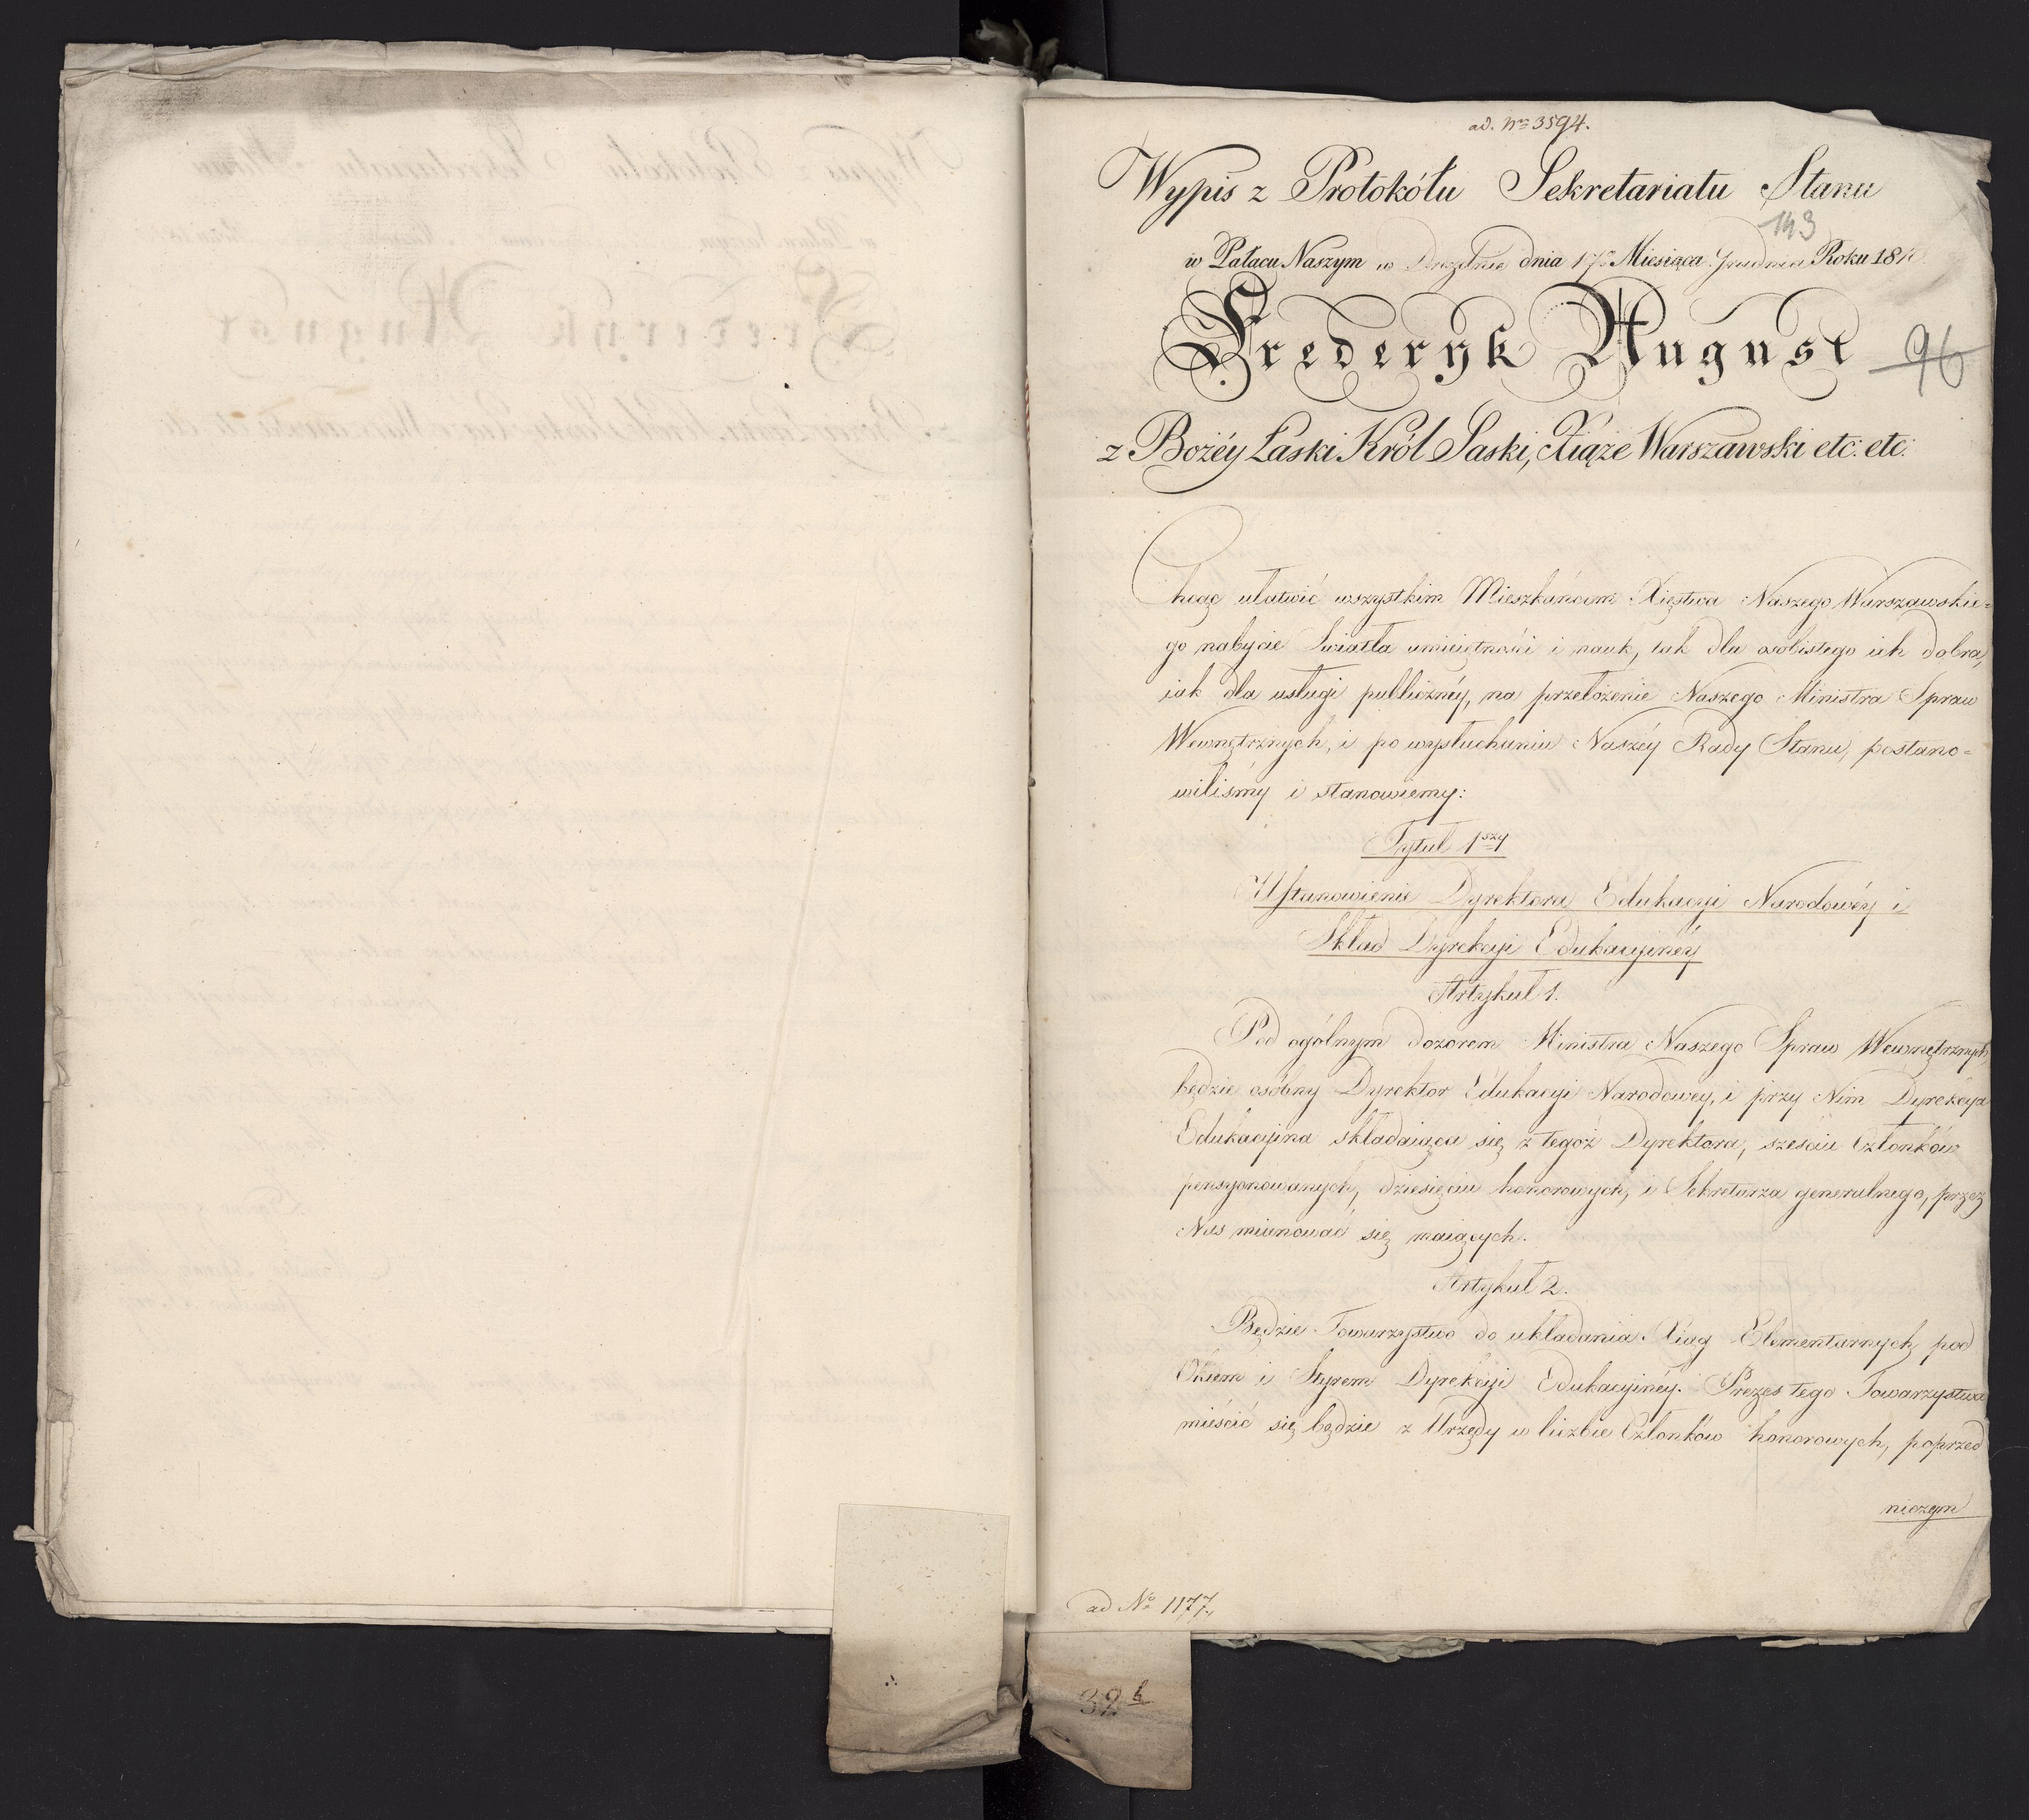 ad. Nro 3594.
Wypis z Protokółu Sekretariatu Stanu
143
w Pałacu Naszym w Dreznie dnia 17o Miesiąca Grudnia Roku 181
Frederyk August
96
z Bożéy Łaski Król Saski, Xiąże Warszawski etc: etc:
Chcąc ułatwić wszystkim Mieszkańcom Xięstwa Naszego Warszawskie=
go nabycie Światła umieiętności i nauk, tak dla osobistego ich dobra,
iak dla usługi publicznéy, na przełożenie Naszego Ministra Spraw
Wewnętrznych, i po wysłuchaniu Naszéy Rady Stanu, postano=
wiliśmy i stanowiemy:
Tytuł 1szy
Ustanowienie Dyrektora Edukacyi Narodowéy i
Skład Dyrekcyi Edukacyinéy
Artykuł 1.
Pod ogólnym dozorem Ministra Naszego Spraw Wewnętrznych
będzie osóbny Dyrektor Edukacyi Narodowey, i przy Nim Dyrekcya
Edukacyina składaiąca się z tegoż Dyrektora, sześciu Członków
pensyonowanych, dziesięciu honorowych, i Sekretarza generalnego, przez
Nas mianować się maiących.
Artykuł 2.
Będzie Towarzystwo do układania Xiąg Elementarnych pod
Okiem i Sterem Dyrekcyi Edukacyinéy. Prezes tego Towarzystwa
mieścić się będzie z Urzędu w liczbie Członków honorowych, poprzed
niczym
ad No 1177.
32 b